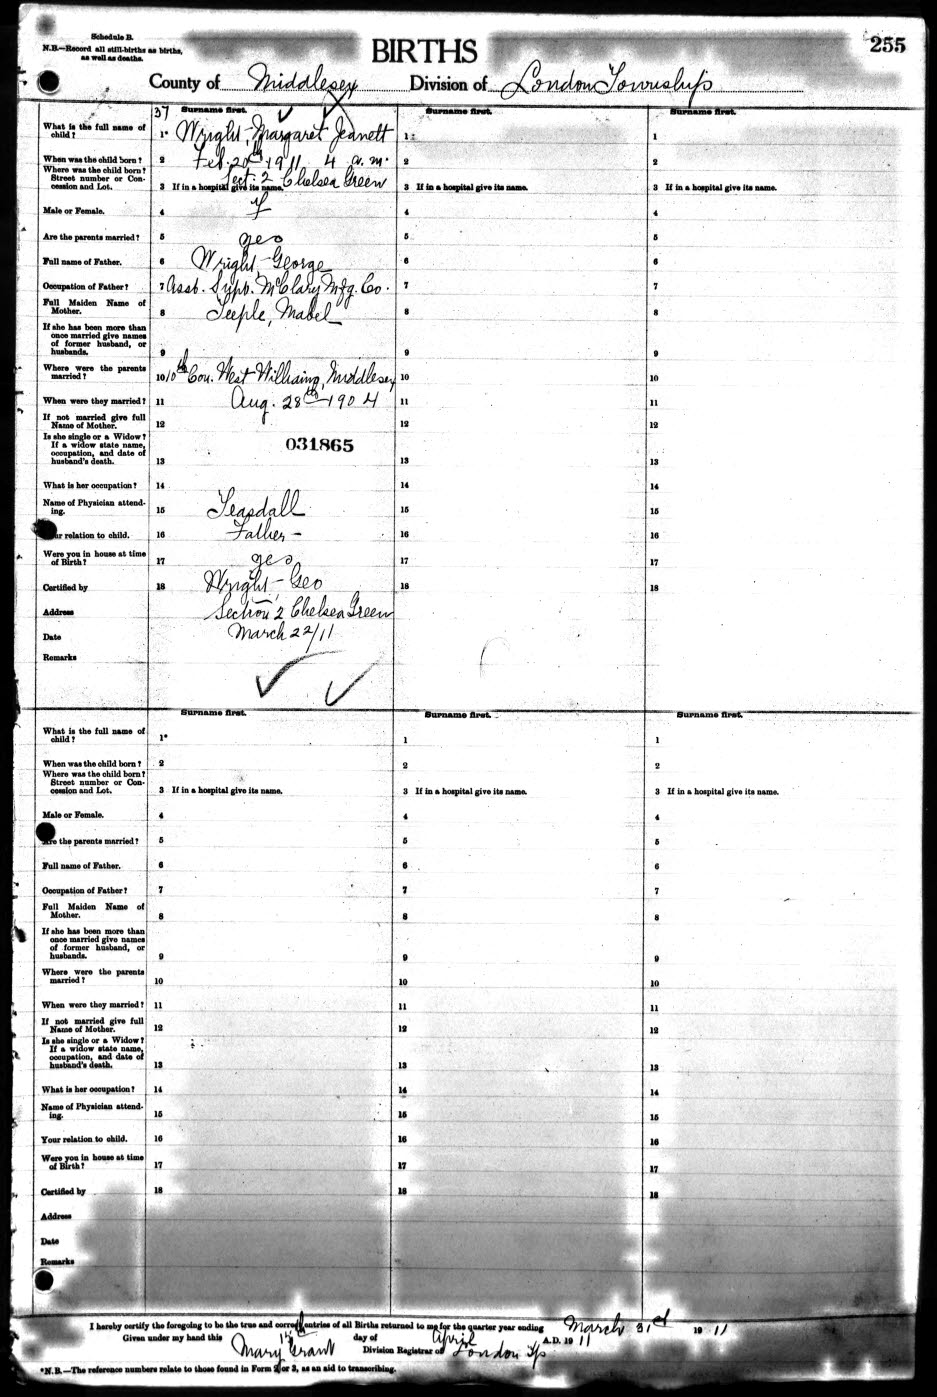 Schedule B.
N.B.—Record all still-births as births,
as well as deaths.
BIRTHS
255
County of Middlesex Division of London Township
37 Surname first. Surname first. Surname first.
What is the full name of child? 1* Wright, Margaret Jeanett 1 1
When was the child born? 2 Feb. 20th 1911 4 a.m. 2 2
Where was the child born? Street number or Concession and Lot. 3 If in a hospital give its name. Sect. 2 Chelsea Green 3 If in a hospital give its name. 3 If in a hospital give its name.
Male or Female. 4 f 4 4
Are the parents married? 5 yes 5 5
Full name of Father. 6 Wright, George 6 6
Occupation of Father? 7 Asst. Supt. McClary Mfg. Co. 7 7
Full Maiden Name of Mother. 8 Teeple, Mabel 8 8
If she has been more than once married give names of former husband, or husbands. 9 9 9
Where were the parents married? 10 10th Con. West Williams, Middlesex 10 10
When were they married? 11 Aug. 28th 1904 11 11
If not married give full Name of Mother. 12 12
Is she single or a Widow? If a widow state name, occupation, and date of husband's death. 13 031865 13 13
What is her occupation? 14 14 14
Name of Physician attending. 15 Teasdall 15 15
Your relation to child. 16 Father - 16 16
Were you in house at time of Birth? 17 yes 17 17
Certified by 18 Wright - Geo 18 18
Address Section 2 Chelsea Green
Date March 22/11
Remarks
Surname first. Surname first. Surname first.
What is the full name of child? 1* 1 1
When was the child born? 2 2 2
Where was the child born? Street number or Concession and Lot. 3 If in a hospital give its name. 3 If in a hospital give its name. 3 If in a hospital give its name.
Male or Female. 4 4 4
Are the parents married? 5 5 5
Full name of Father. 6 6 6
Occupation of Father? 7 7 7
Full Maiden Name of Mother. 8 8 8
If she has been more than once married give names of former husband, or husbands. 9 9 9
Where were the parents married? 10 10 10
When were they married? 11 11 11
If not married give full Name of Mother. 12 12 12
Is she single or a Widow? If a widow state name, occupation, and date of husband's death. 13 13 13
What is her occupation? 14 14 14
Name of Physician attending. 15 15 15
Your relation to child. 16 16 16
Were you in house at time of Birth? 17 17 17
Certified by 18 18 18
Address
Date
Remarks
I hereby certify the foregoing to be the true and correct entries of all Births returned to me for the quarter year ending March 31st 1911
Given under my hand this day of April A.D. 1911
Mary Grant Division Registrar of London Tp
*N.B.—The reference numbers relate to those found in Form 2 or 3, as an aid to transcribing.